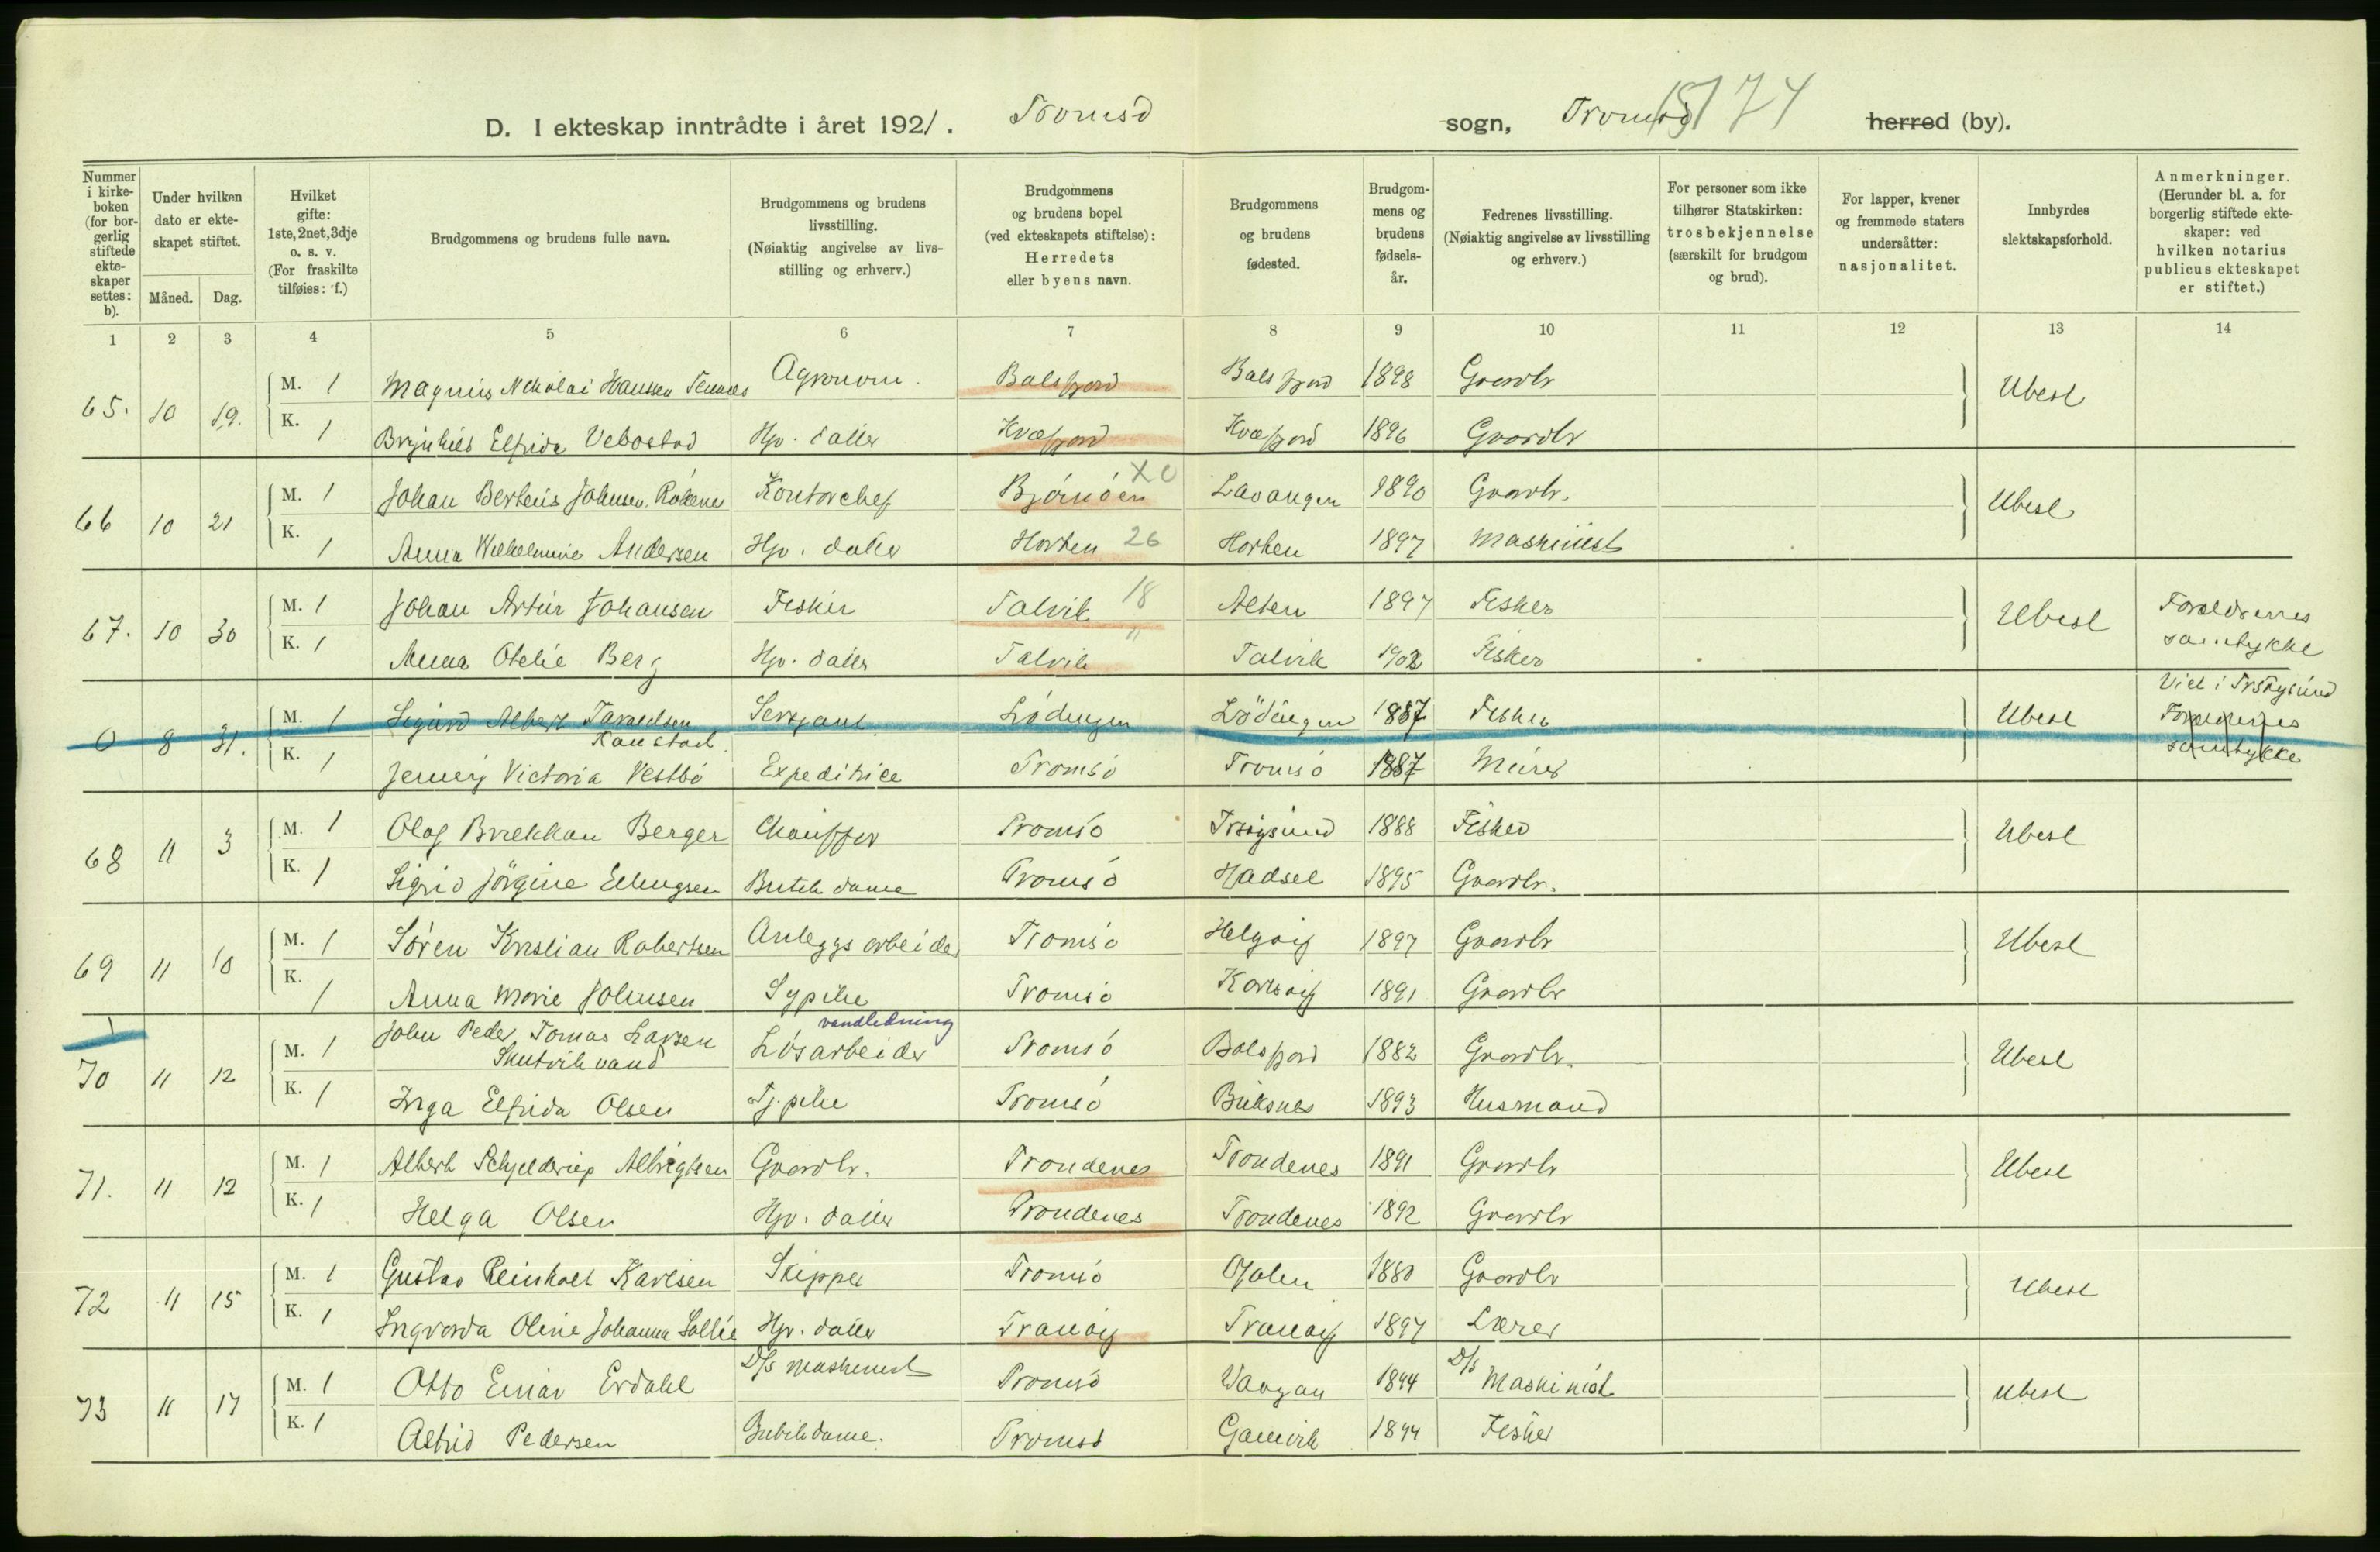 D. I ekteskap inntrådte i året 1921. Tromsö sogn, Tromsö 15174 herred (by).
Nummer i kirkeboken (for borgerlig stiftede ekteskaper settes: b).
Under hvilken dato er ekteskapet stiftet.
Måned. Dag.
Hvilket gifte: 1ste, 2net, 3dje o. s. v. (For fraskilte tilføies: f.)
Brudgommens og brudens fulle navn.
Brudgommens og brudens livsstilling. (Nøiaktig angivelse av livsstilling og erhverv.)
Brudgommens og brudens bopel (ved ekteskapets stiftelse): Herredets eller byens navn.
Brudgommens og brudens fødested.
Brudgommens og brudens fødselsår.
Fedrenes livsstilling. (Nøiaktig angivelse av livsstilling og erhverv.)
For personer som ikke tilhører Statskirken: trosbekjennelse (særskilt for brudgom og brud).
For lapper, kvener og fremmede staters undersåtter: nasjonalitet.
Innbyrdes slektskapsforhold.
Anmerkninger. (Herunder bl. a. for borgerlig stiftede ekteskaper: ved hvilken notarius publicus ekteskapet er stiftet.)
1 2 3 4 5 6 7 8 9 10 11 12 13 14
65. 10 19. M. 1 Magnus Nikolai Hanssen Tennes Agronom. Balsfjord Balsfjord 1898 Gaardbr Ubesl
K. 1 Elfrida Vebostad Hjv. datter Kvæfjord Kvæfjord 1896 Gaardbr
66 10 21 M. 1 Johan Berteus Johnsen Röknes Kontorchef Bjørnöen XO Lavangen 1890 Gaardbr. Ubesl
K. 1 Anna Wilhelmine Andersen Hjv. datter Horten 26 Horten 1897 Maskinist
67. 10 30 M. 1 Johan Artur Johansen Fisker Talvik 18 Alten 1897 Fisker Ubesl Foreldrenes samtykke
K. 1 Anna Otelie Berg Hjv. datter Talvik " Talvik 1902 Fisker
0 8 31. M. 1 Sigurd Albert Taraldsen Kanstad Serzjant Lödingen Lödingen 1887 Fisker Ubesl Viet i Tromsysund Foreldrenes samtykke
K. 1 Jenny Victoria Vestbö Expeditrice Tromsö Tromsö 1887 Murer
68 11 3 M. 1 Olaf Brækkan Berger Chauffør Tromsö Tromsysund 1888 Fisker Ubesl
K. 1 Sigrid Jörgine Ellingsen Butikdame Tromsö Hadsel 1895 Gaardbr.
69 11 10 M. 1 Sören Kristian Robertsen Anleggsarbeider Tromsö Helgöy 1897 Gaardbr Ubesl
K. 1 Anna Marie Johnsen Sypike Tromsö Karlsöy 1891 Gaardbr
1
70 11 12 M. 1 John Peder Tomas Larsen Skutvikvand vandledning Lösarbeider Tromsö Balsfjord 1882 Gaardbr. Ubesl
K. 1 Inga Elfrida Olsen Tj. pike Tromsö Buksnes 1893 Husmand
71. 11 12 M. 1 Albert Schjelderup Albrigtsen Gaardbr. Trondenes Trondenes 1891 Gaardbr Ubesl
K. 1 Helga Olsen Hjv. datter Trondenes Trondenes 1892 Gaardbr
72 11 15 M. 1 Gustav Reinholt Karlsen Skipper Tromsö 1880 Gaardbr Ubesl
K. 1 Ingvarda Oline Johanna Sollie Hjv. datter Tranöy Tranöy 1897 Lærer
73 11 17 M. 1 Otto Einar Erdahl D/s maskinist Tromsö Vaagan 1894 D/s Maskinist Ubesl
K. 1 Astrid Pedersen Butikdame. Tromsö Gamvik 1894 Fisker